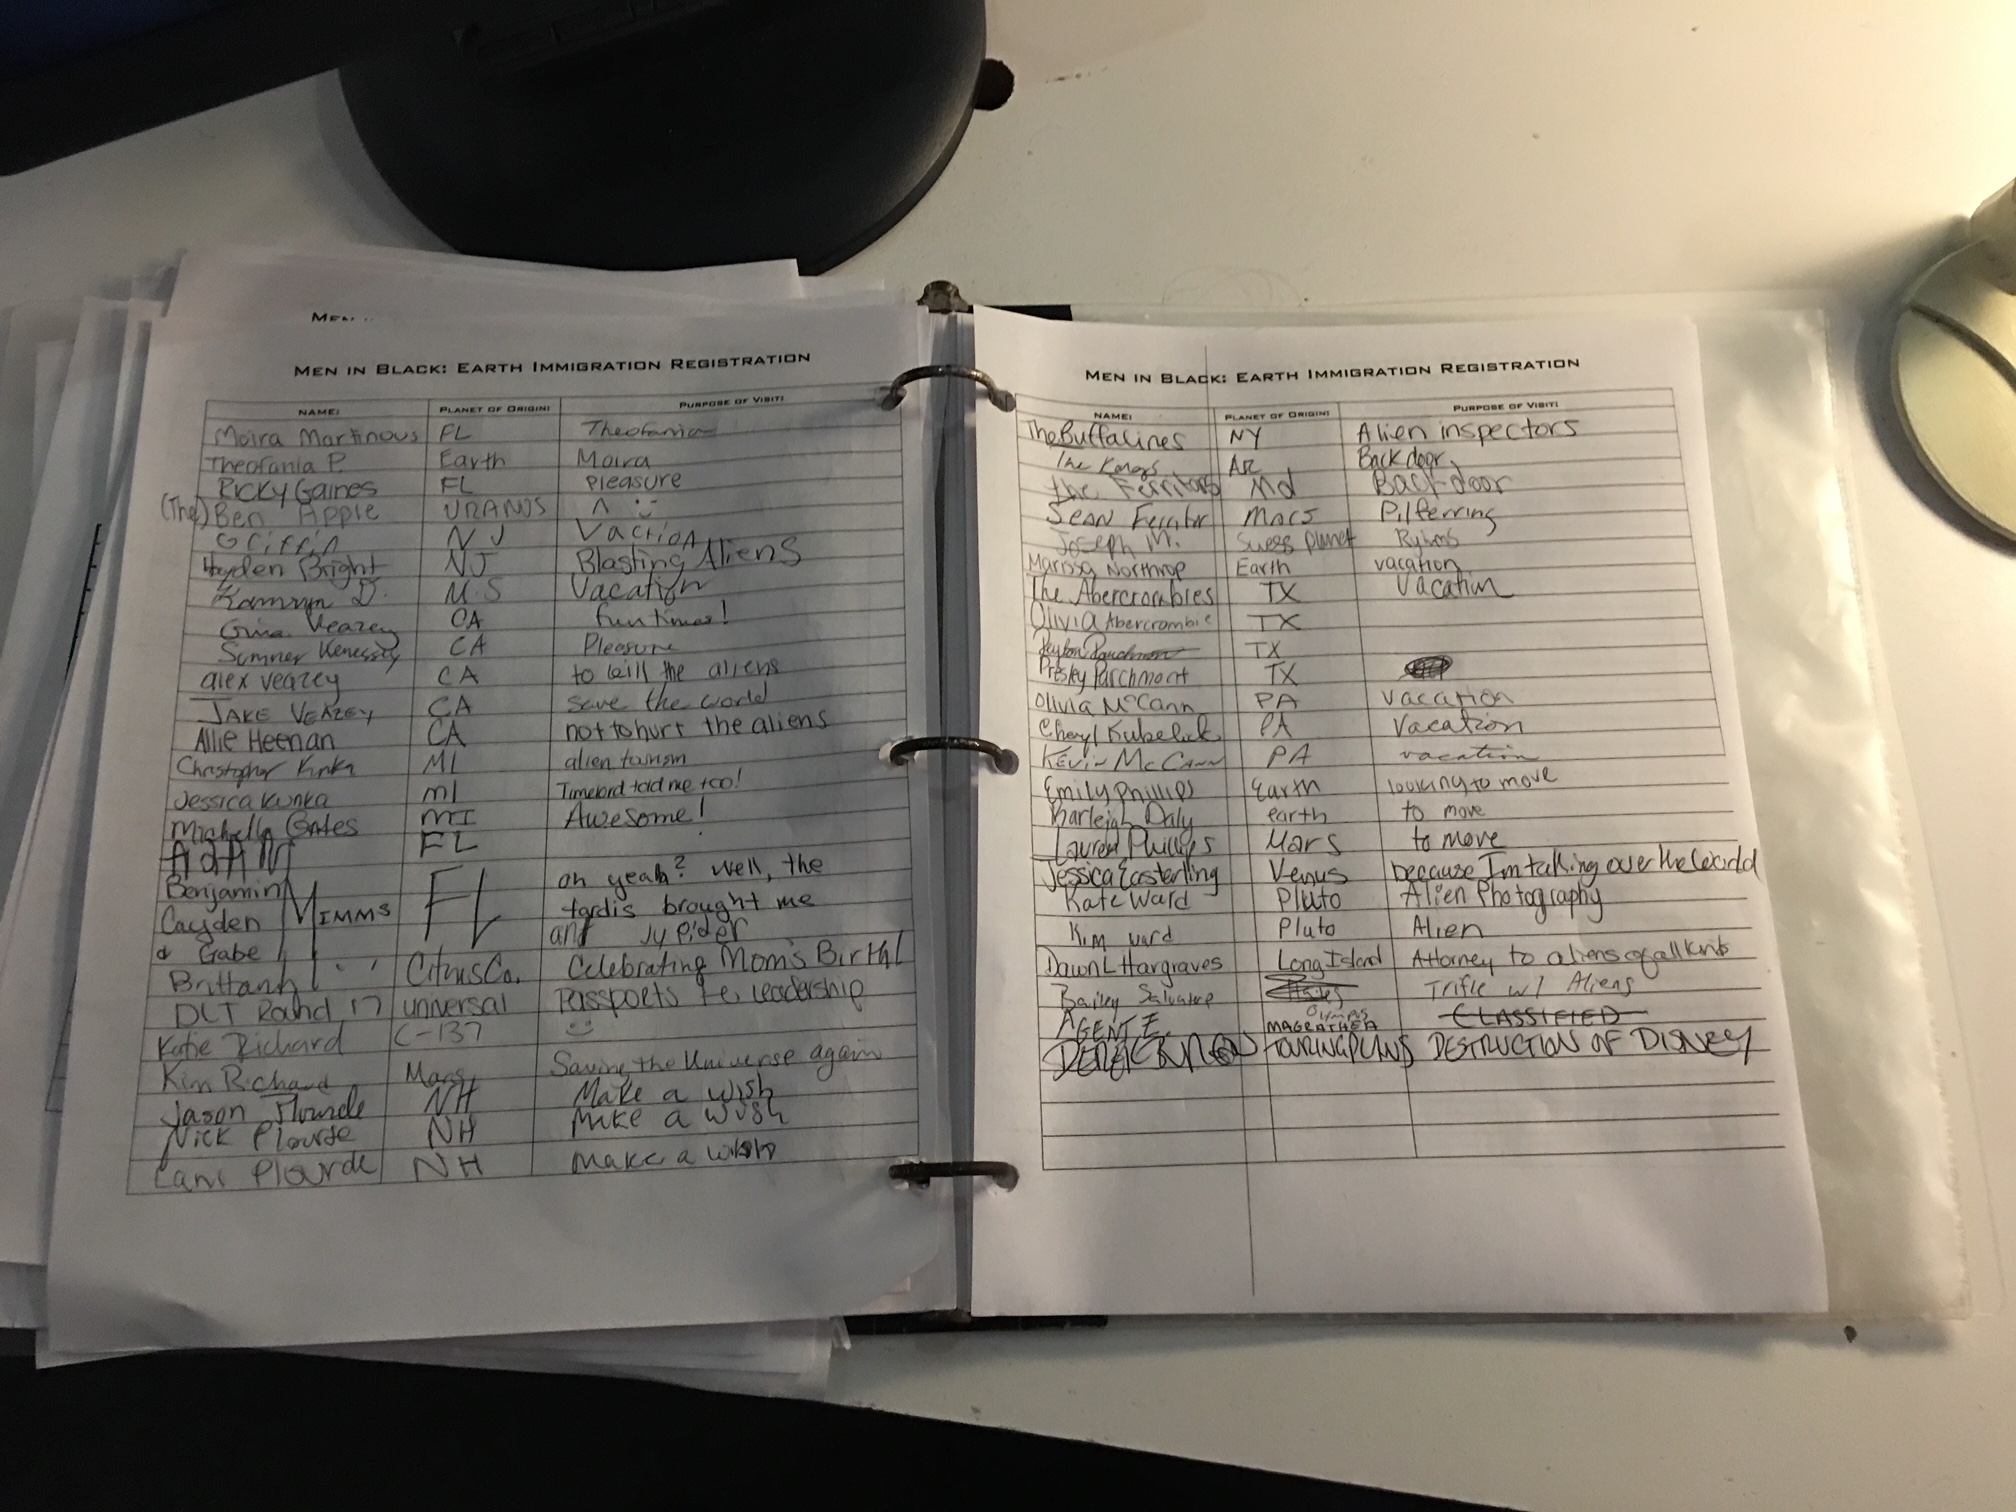 MEN IN BLACK: EARTH IMMIGRATION REGISTRATION
NAME: PLANET OF ORIGIN: PURPOSE OF VISIT:
Moira Martinous FL Theofania
Theofania P. Earth Moira
Ricky Gaines FL Pleasure
(The) Ben Apple URANUS ^ :)
Griffin NJ Vaction
Hayden Bright NJ Blasting Aliens
Kamryn D. MS Vacation
Gina Veazey CA fun times!
Sumner CA Pleasure
alex veazey CA to kill the aliens
JAKE VEAZEY CA save the world
Allie Heenan CA not to hurt the aliens
Christopher MI alien tourism
Jessica Kunka MI Timelord told me too!
Michelle Gates MI Awesome!
AdAM FL
Benjamin
Cayden MIMMS FL oh yeah? well, the
& Gabe tardis brought me
and
Brittany Citrus Co. Celebrating Mom's Birthd
DLT Round 17 universal Passports leadership
Katie Richard C-137 :)
Kim Richard Mars Saving the Universe again
Jason Plourde NH Make a wish
Nick Plourde NH Make a wish
Plourde NH Make a wish
MEN IN BLACK: EARTH IMMIGRATION REGISTRATION
NAME: PLANET OF ORIGIN: PURPOSE OF VISIT:
The Buffalines NY Alien inspectors
The AR Back door
the Md Back door
Sean Mars Pilferring
Joseph M. planet
Marissa Northrop Earth vacation
The Abercrombies TX Vacation
Olivia Abercrombie TX
TX
Presley Parchmont TX
Olivia McCann PA vacation
Cheryl Kubelick PA Vacation
KEVIN McCANN PA vacation
Emily Phillips Earth looking to move
Karleigh Daly earth to move
Lauren Phillips Mars to move
Jessica Easterling Venus because Im taking over the World
Kate Ward Pluto Alien Photography
Kim ward Pluto Alien
Dawn L Hargraves Long Island Attorney to aliens of all kinds
Bailey Trifle w/ Aliens
AGENT E. MAGRATHEA CLASSIFIED
TOURINGPLANS DESTRUCTION OF DISNEY